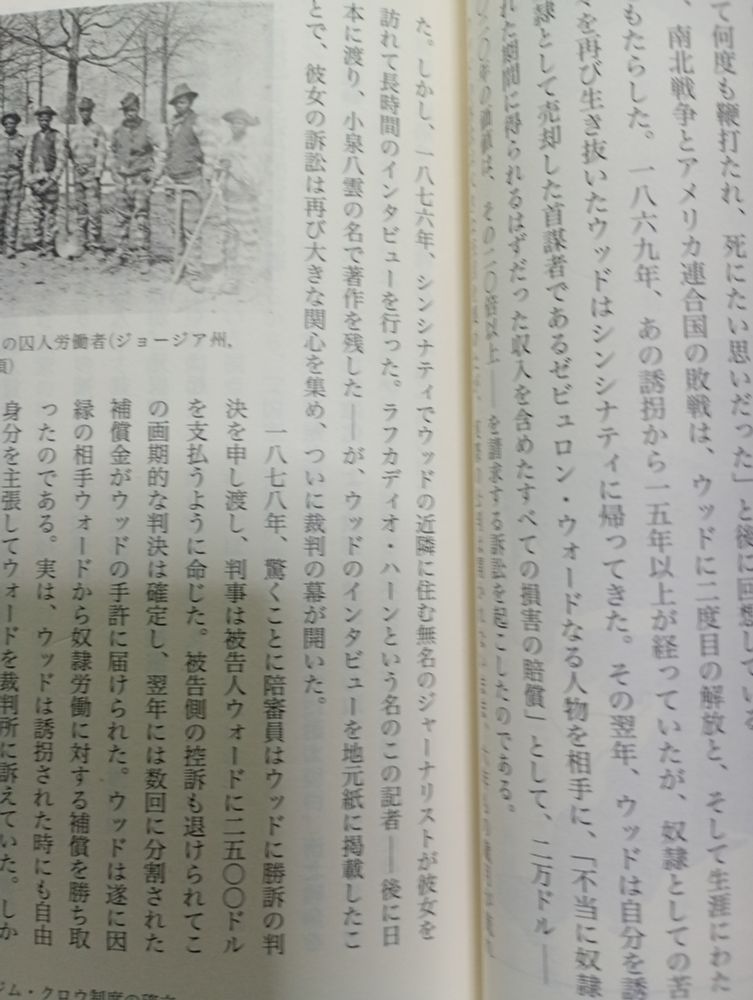 て何度も鞭打たれ、死にたい思いだった」と後に回想してい
、南北戦争とアメリカ連合国の敗戦は、ウッドに二度目の解放と、そして生涯にわた
もたらした。一八六九年、あの誘拐から一五年以上が経っていたが、奴隷としての苦
を再び生き抜いたウッドはシンシナティに帰ってきた。その翌年、ウッドは自分を誘
隷として売却した首謀者であるゼビュロン・ウォードなる人物を相手に、「不当に奴隷
れた期間に得られるはずだった収入を含めたすべての損害の賠償」として、二万ドル――
の価値は、その二〇倍以上――を請求する訴訟を起こしたのである。
た。しかし、一八七六年、シンシナティでウッドの近隣に住む無名のジャーナリストが彼女を
訪れて長時間のインタビューを行った。ラフカディオ・ハーンという名のこの記者――後に日
本に渡り、小泉八雲の名で著作を残した――が、ウッドのインタビューを地元紙に掲載したこ
とで、彼女の訴訟は再び大きな関心を集め、ついに裁判の幕が開いた。
一八七八年、驚くことに陪審員はウッドに勝訴の判
決を申し渡し、判事は被告人ウォードに二五〇〇ドル
を支払うように命じた。被告側の控訴も退けられてこ
の画期的な判決は確定し、翌年には数回に分割された
補償金がウッドの手許に届けられた。ウッドは遂に因
縁の相手ウォードから奴隷労働に対する補償を勝ち取
ったのである。実は、ウッドは誘拐された時にも自由
身分を主張してウォードを裁判所に訴えていた。しか
の囚人労働者(ジョージア州、
頃)
ジム・クロウ制度の確立